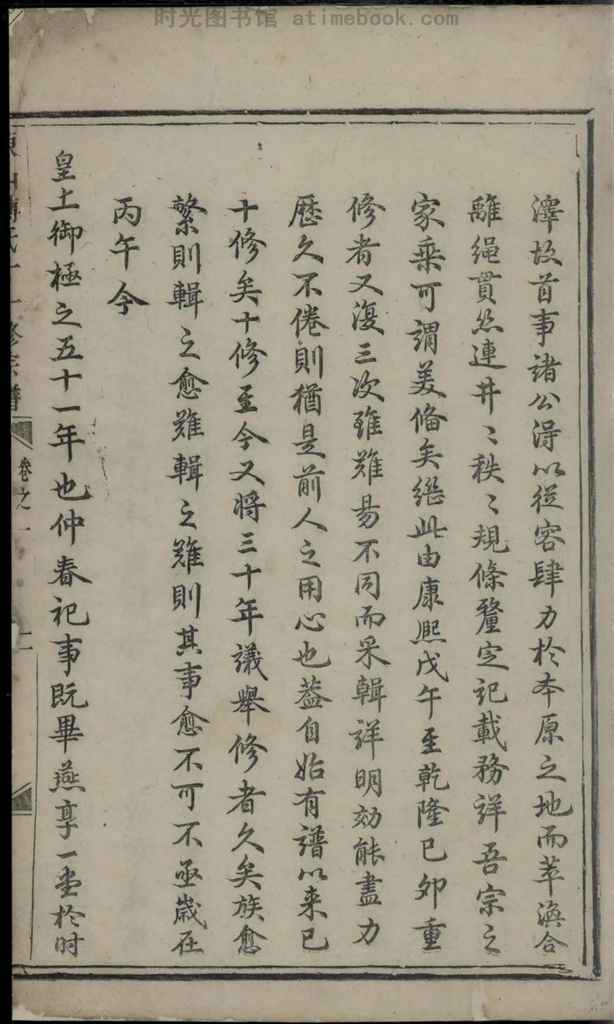 时光图书馆 atimebook.com
澤故首事諸公得以從容肆力於本原之地而萃渙合
離繩貫絲連井〻秩〻規條釐定記載務詳吾宗之
家乘可謂美備矣繼此由康熙戊午至乾隆己卯重
修者又復三次雖難易不同而采輯詳明効能盡力
歷久不倦則猶是前人之用心也蓋自始有譜以来已
十修矣十修至今又將三十年議舉修者久矣族愈
繁則輯之愈難輯之難則其事愈不可不亟歲在
丙午今
皇上御極之五十一年也仲春祀事既畢燕享一堂於时
氏十一修宗譜
卷之一
二